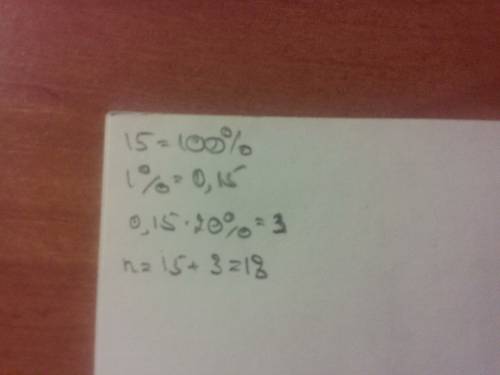 15=100%
1%=0,15
0,15·20%=3
n=15+3=18